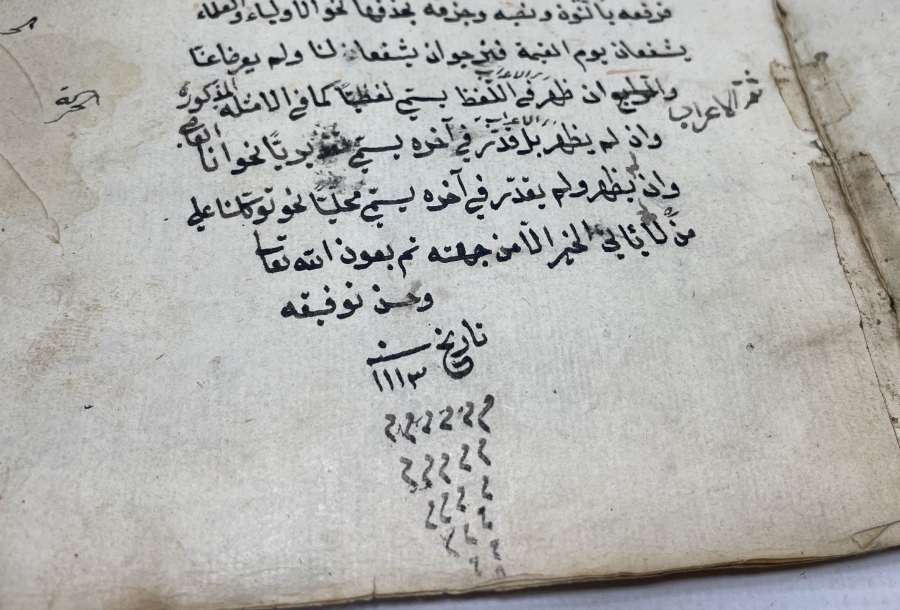 فرفعه بالنون ونصبه وجزمه بحذفها نحو الاولياء والعلماء
يشفعان يوم القيمة فنرجوان يشفعان لنا ولم يعرضا عنا
ثم الاعراب ان ظهر في اللفظ يسمى لفظيا كما في الامثلة المذكورة
وان لم يظهر بل قدر في آخره يسمى تقديريا نحو انا
وان لم يظهر ولم يقدر في آخره يسمى محليا نحو توكلنا على
من لا يأتي الخير الا من جهته تم بعون الله تعا
وحسن توفيقه
تاريخ سنه
١١١٣